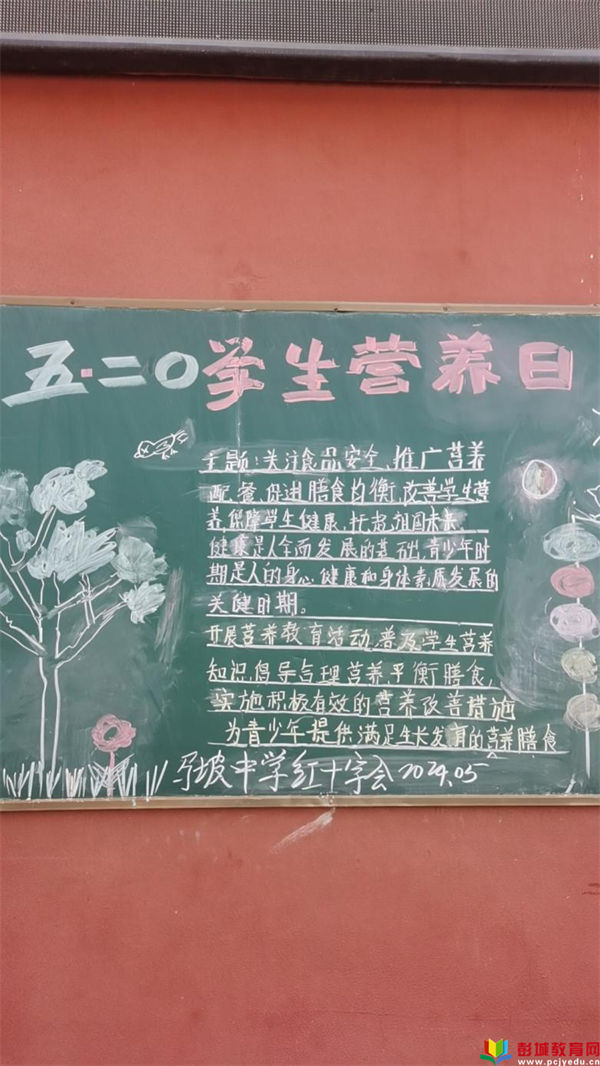 五·二〇学生营养日
主题:关注食品安全、推广营养
配餐、促进膳食均衡,改善学生营
养,保障学生健康,托起祖国未来。
健康是人全面发展的基础,青少年时
期是人的身心健康和身体素质发展的
关健时期。
开展营养教育活动,普及学生营养
知识,倡导合理营养,平衡膳食,
实施积极有效的营养改善措施
为青少年提供满足生长发育的营养膳食
马坡中学红十字会 2024.05
彭城教育网
www.pcjyedu.cn